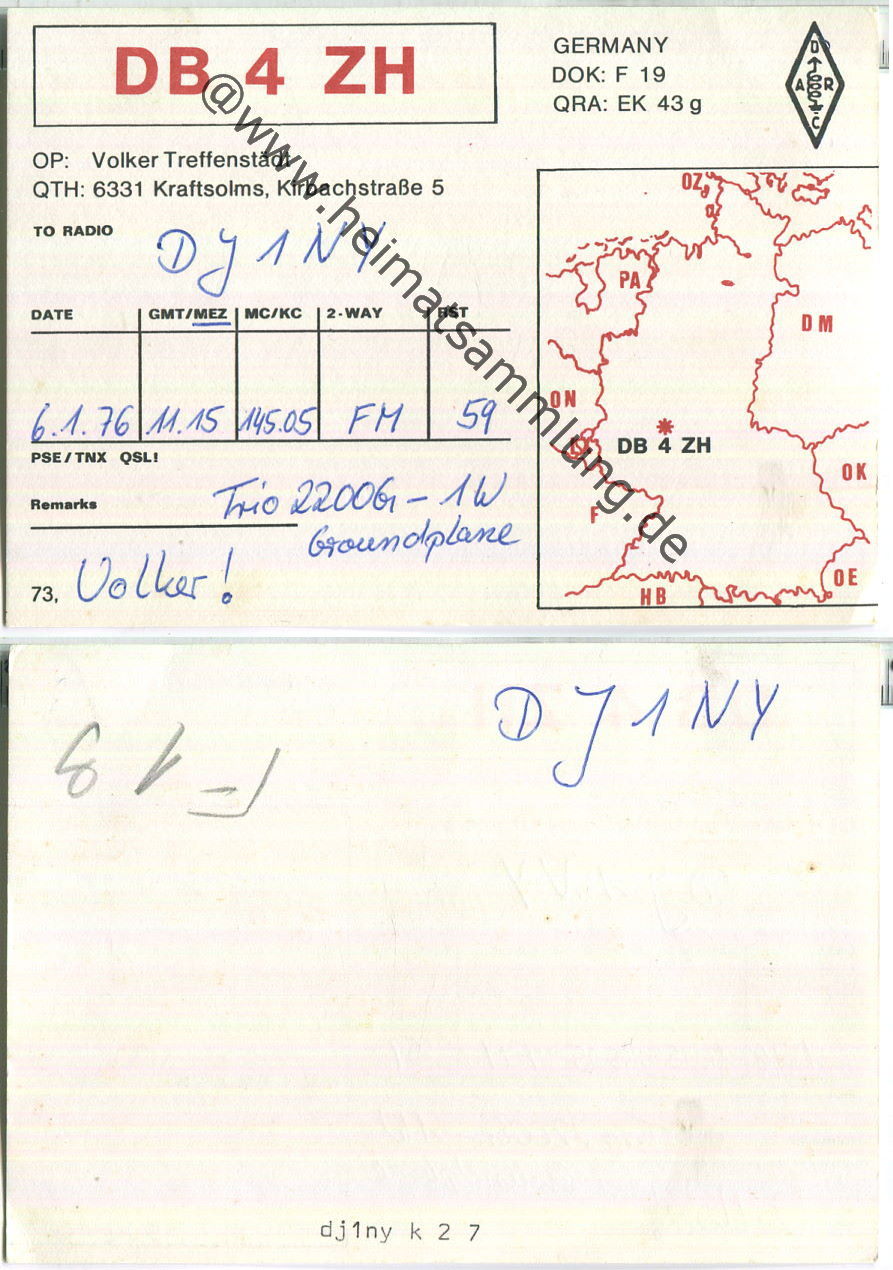 DB 4 ZH
GERMANY
DOK: F 19
QRA: EK 43 g
D A R C
OP: Volker Treffenstädt
QTH: 6331 Kraftsolms, Kirbachstraße 5
TO RADIO
DJ1NY
DATE GMT/MEZ MC/KC 2-WAY RST
6.1.76 11.15 145.05 FM 59
PSE/TNX QSL!
Remarks Trio 2200G - 1W
Groundplane
73, Volker!
OZ
PA
DM
ON
DB 4 ZH
OK
F
OE
HB
@www.heimatsammlung.de
DJ1NY
F 18
dj1ny k 2 7